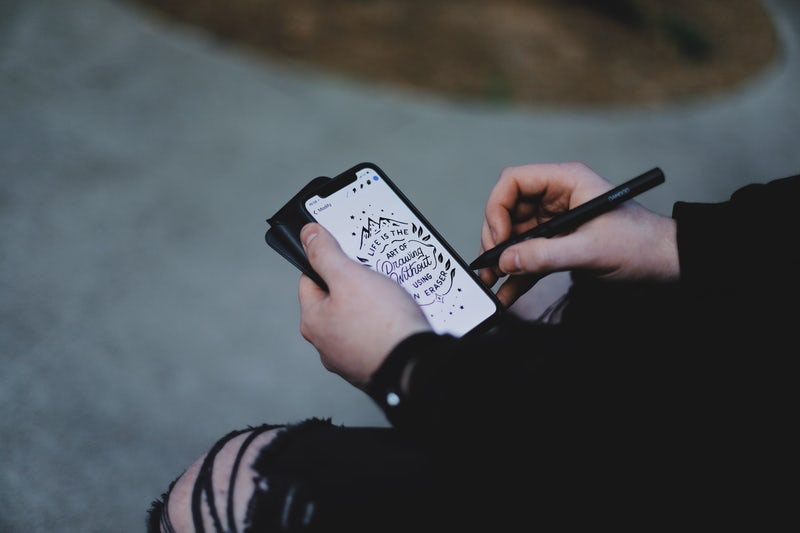 Modify
LIFE IS THE
ART OF
Drawing
Without
USING
N ERASER